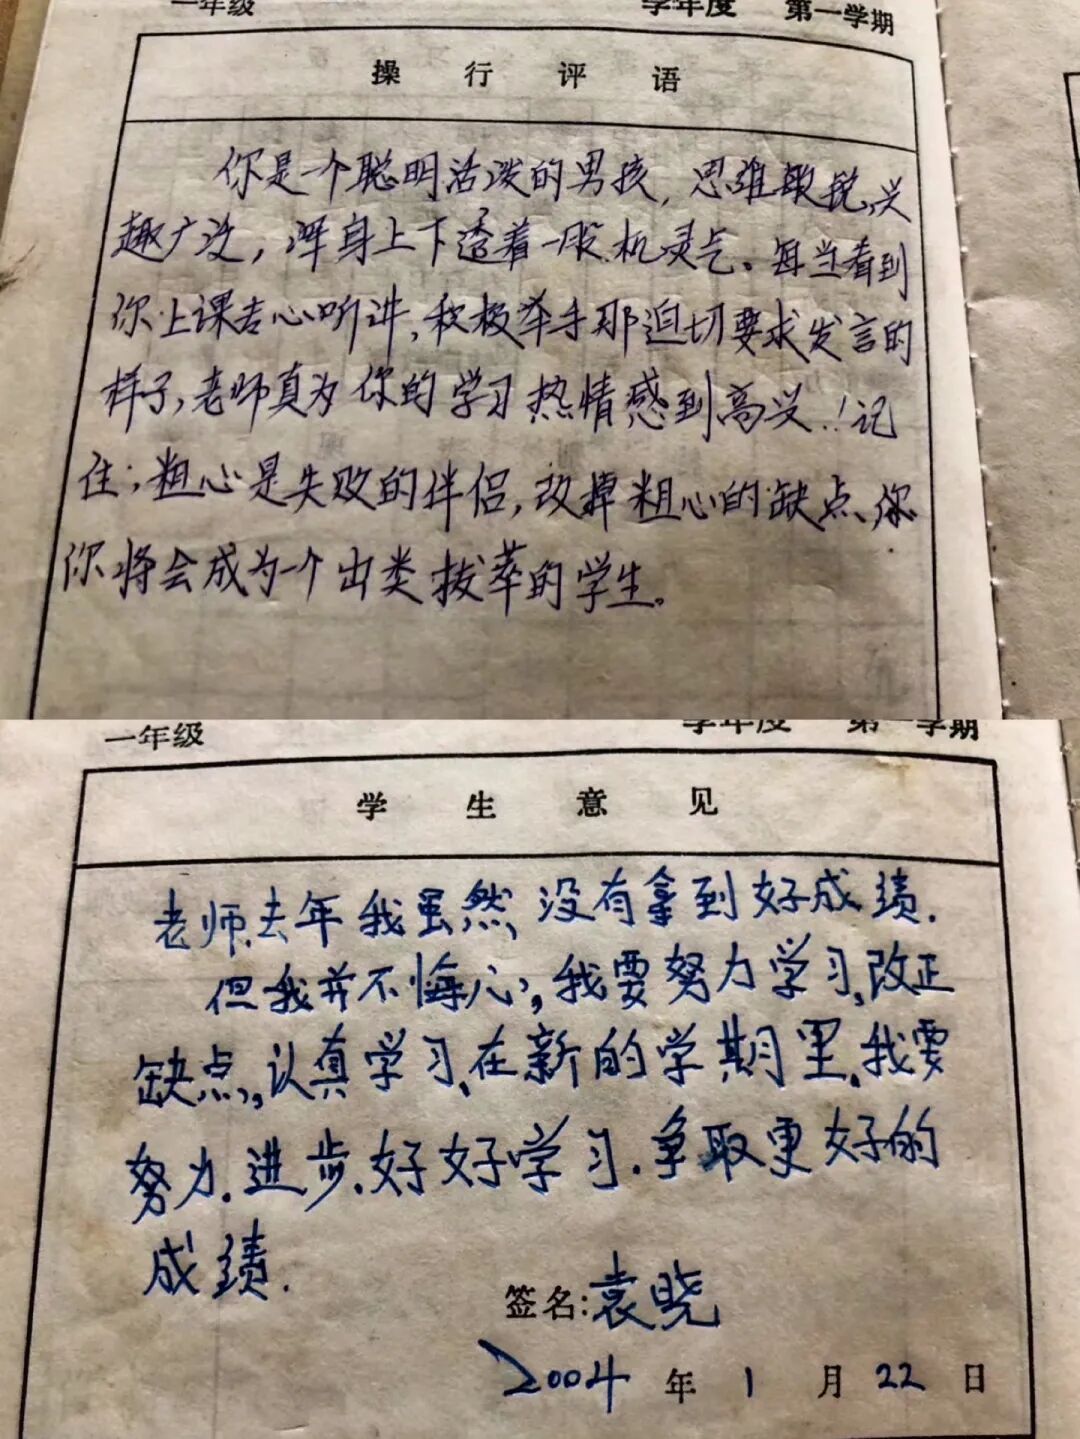 一年级 学年度 第一学期
操行评语
你是一个聪明活泼的男孩,思维敏锐,兴
趣广泛,浑身上下透着一股机灵气。每当看到
你上课专心听讲,积极举手那迫切要求发言的
样子,老师真为你的学习热情感到高兴!记
住:粗心是失败的伴侣,改掉粗心的缺点、你
你将会成为一个出类拔萃的学生。
一年级 学年度 第一学期
学生意见
老师,去年我虽然,没有拿到好成绩.
但我并不悔心,我要努力学习,改正
缺点,认真学习,在新的学期里,我要
努力.进步.好好学习.争取更好的
成绩.
签名:袁晓
2004年1月22日